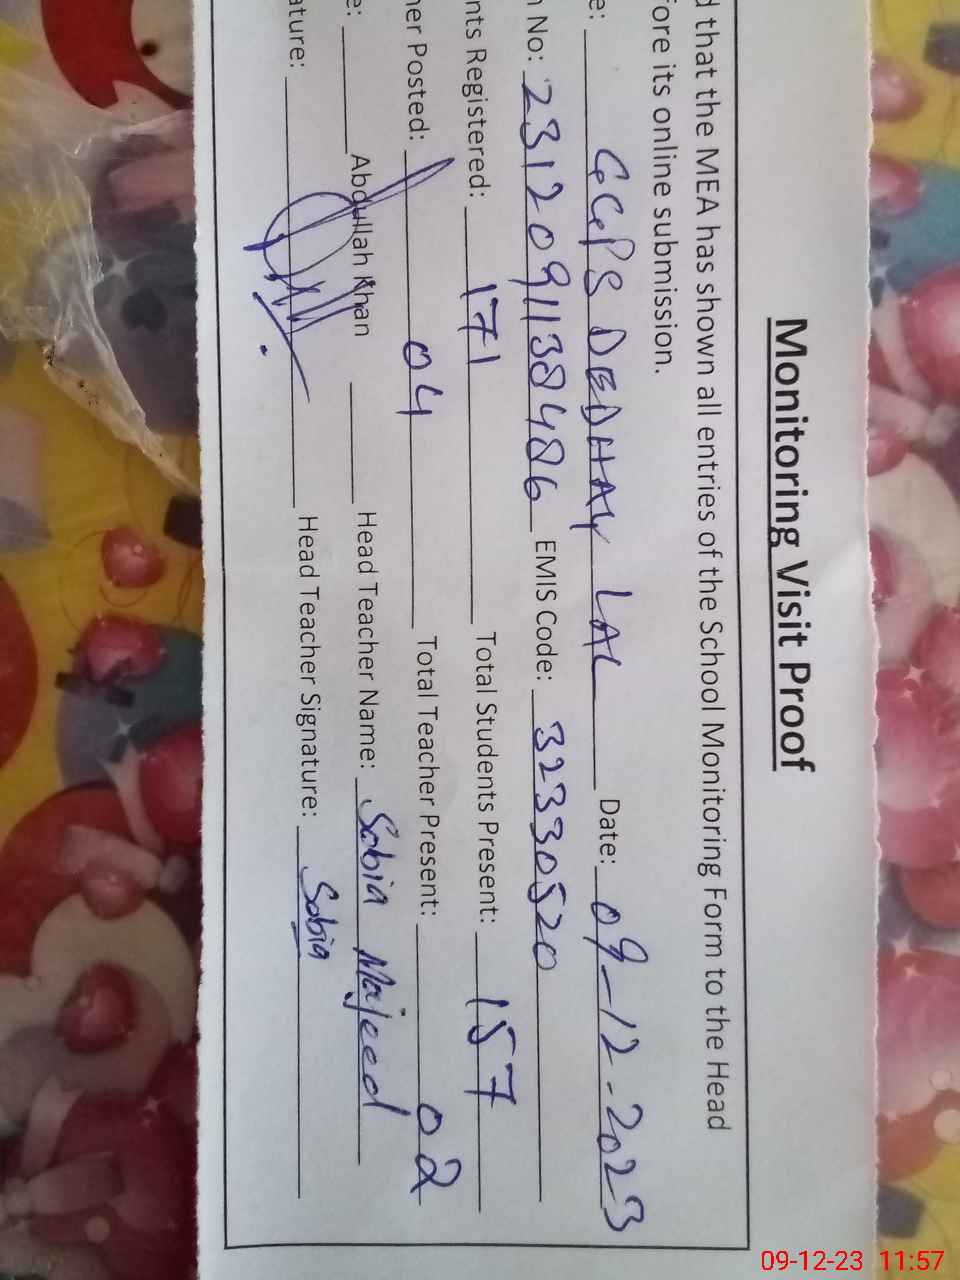 Monitoring Visit Proof
d that the MEA has shown all entries of the School Monitoring Form to the Head
fore its online submission.
e: GGPS DEDHAY LAL Date: 09-12-2023
n No: 23120911384 86 EMIS Code: 32330520
nts Registered: 171 Total Students Present: 157
her Posted: 04 Total Teacher Present: 02
e: Abdullah Khan Head Teacher Name: Sobia Majeed
ature: Head Teacher Signature: Sobia
09-12-23 11:57